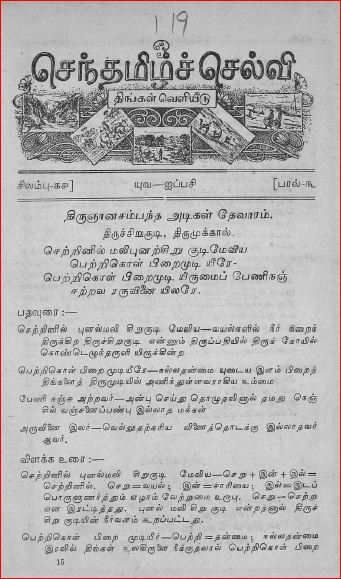 119
செந்தமிழ்ச் செல்வி
திங்கள் வெளியீடு
சிலம்பு-கஈ] யுவ—ஐப்பசி [பரல்-௩
திருஞானசம்பந்த அடிகள் தேவாரம்.
திருச்சிறுகுடி, திருமுக்கால்.
செற்றினில் மலிபுனற்சிறு குடிமேவிய
பெற்றிகொள் பிறைமுடி யீரே-
பெற்றிகொள் பிறைமுடி யீருமைப் பேணிநஞ்
சற்றவ ரருவினை யிலரே.
பதவுரை :—
செற்றினில் புனல்மலி சிறுகுடி மேவிய—வயல்களில் நீர் நிறைந்
திருக்கிற திருச்சிறுகுடி என்னும் திருப்பதியில் திருக் கோயில்
கொண்டெழுந்தருளி யிருக்கின்ற
பெற்றிகொள் பிறை முடியீரே—நல்லதன்மை யுடைய இளம் பிறைத்
திங்களைத் திருமுடியில் அணிந்துள்ளவராகிய உம்மை
பேணி நஞ்சு அற்றவர்—அன்பு செய்து தொழுதலினால் தமது நெஞ்
சில் வஞ்சனைப்பண்பு இல்லாத மக்கள்
அருவினை இலர்—வெல்லுதற்கரிய வினைத்தொடக்கு இல்லாதவர்
ஆவர்.
விளக்க உரை :—
செற்றினில் புனல்மலி சிறுகுடி மேவிய—செறு + இன் + இல்=
செற்றினில். செறு=வயல்; இன்=சாரியை; இல்=இடப்
பொருளுணர்த்தும் ஏழாம் வேற்றுமை உருபு. செறு—செற்று
என இரட்டித்தது. புனல் மலி சிறு குடி என்றதனால் திருச்
சிறு குடியின் நீர்வளம் கூறப்பட்டது.
பெற்றிகொள் பிறை முடியீர்—பெற்றி=தன்மை; நல்லதன்மை
இரவில் திங்கள் உலகிருளை நீக்குதலால் பெற்றிகொள் பிறை
15